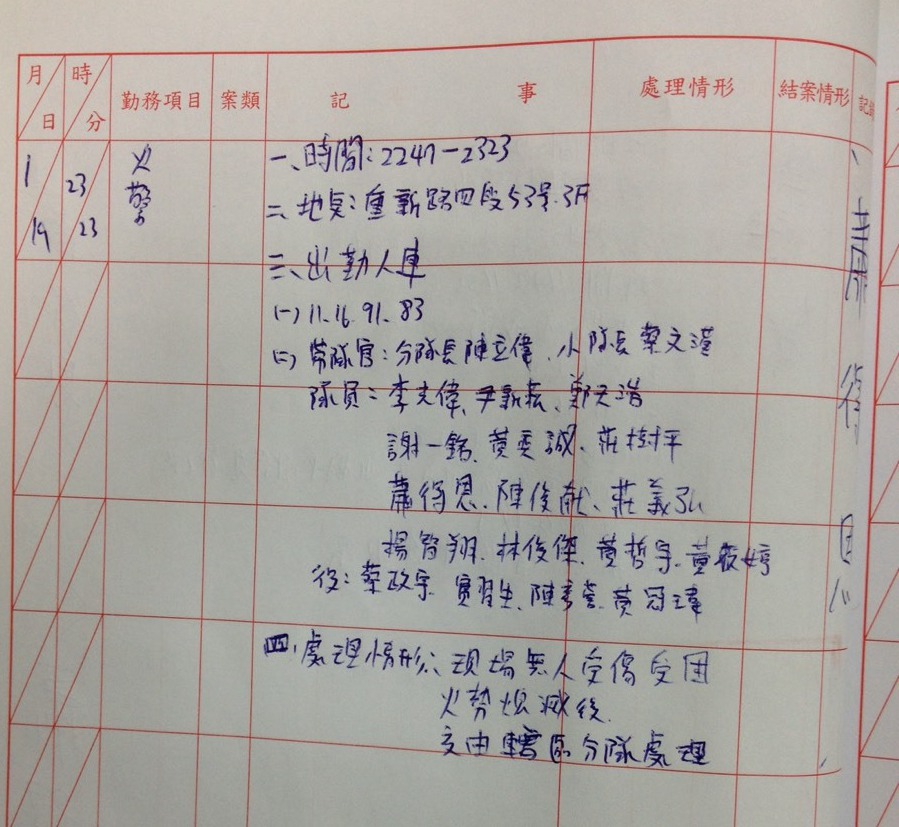 月 日 時 分 勤務項目 案類 記 事 處理情形 結案情形
1 19 23 23 火警
一、時間：2247-2323
二、地點：重新路四段53號3F
三、出勤人車
(一) 11.16.91.83
(二) 帶隊官：分隊長陳立偉、小隊長蔡文
隊員：李光偉、尹新、鄭浩
謝一銘、黃誠、莊樹平
蕭得恩、陳俊猷、莊義弘
楊智翔、林俊傑、黃哲宇、黃婷
役：蔡政宇、實習生、陳、黃冠瑋
四、處理情形：現場無人受傷受困
火勢熄滅後
交由轄區分隊處理
蕭得恩